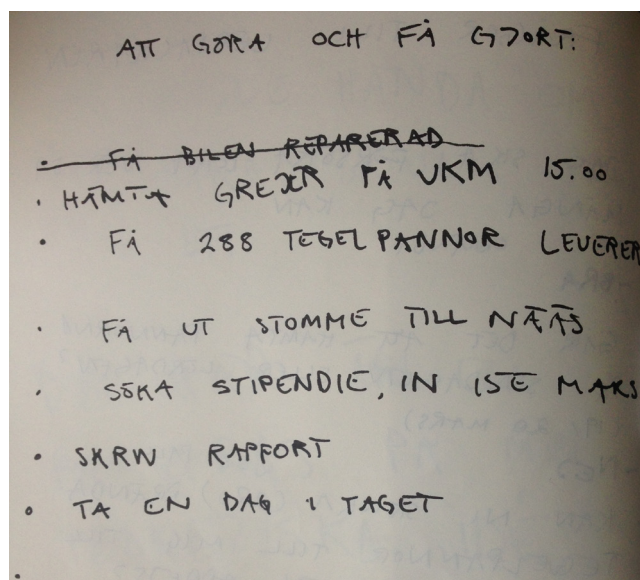 ATT GÖRA OCH FÅ GJORT:
· FÅ BILEN REPARERAD
· HÄMTA GREJER PÅ VKM 15.00
· FÅ 288 TEGELPANNOR LEVERER
· FÅ UT STOMME TILL NÄÄS
· SÖKA STIPENDIE, IN 15E MARS
· SKRIV RAPPORT
· TA EN DAG I TAGET
·